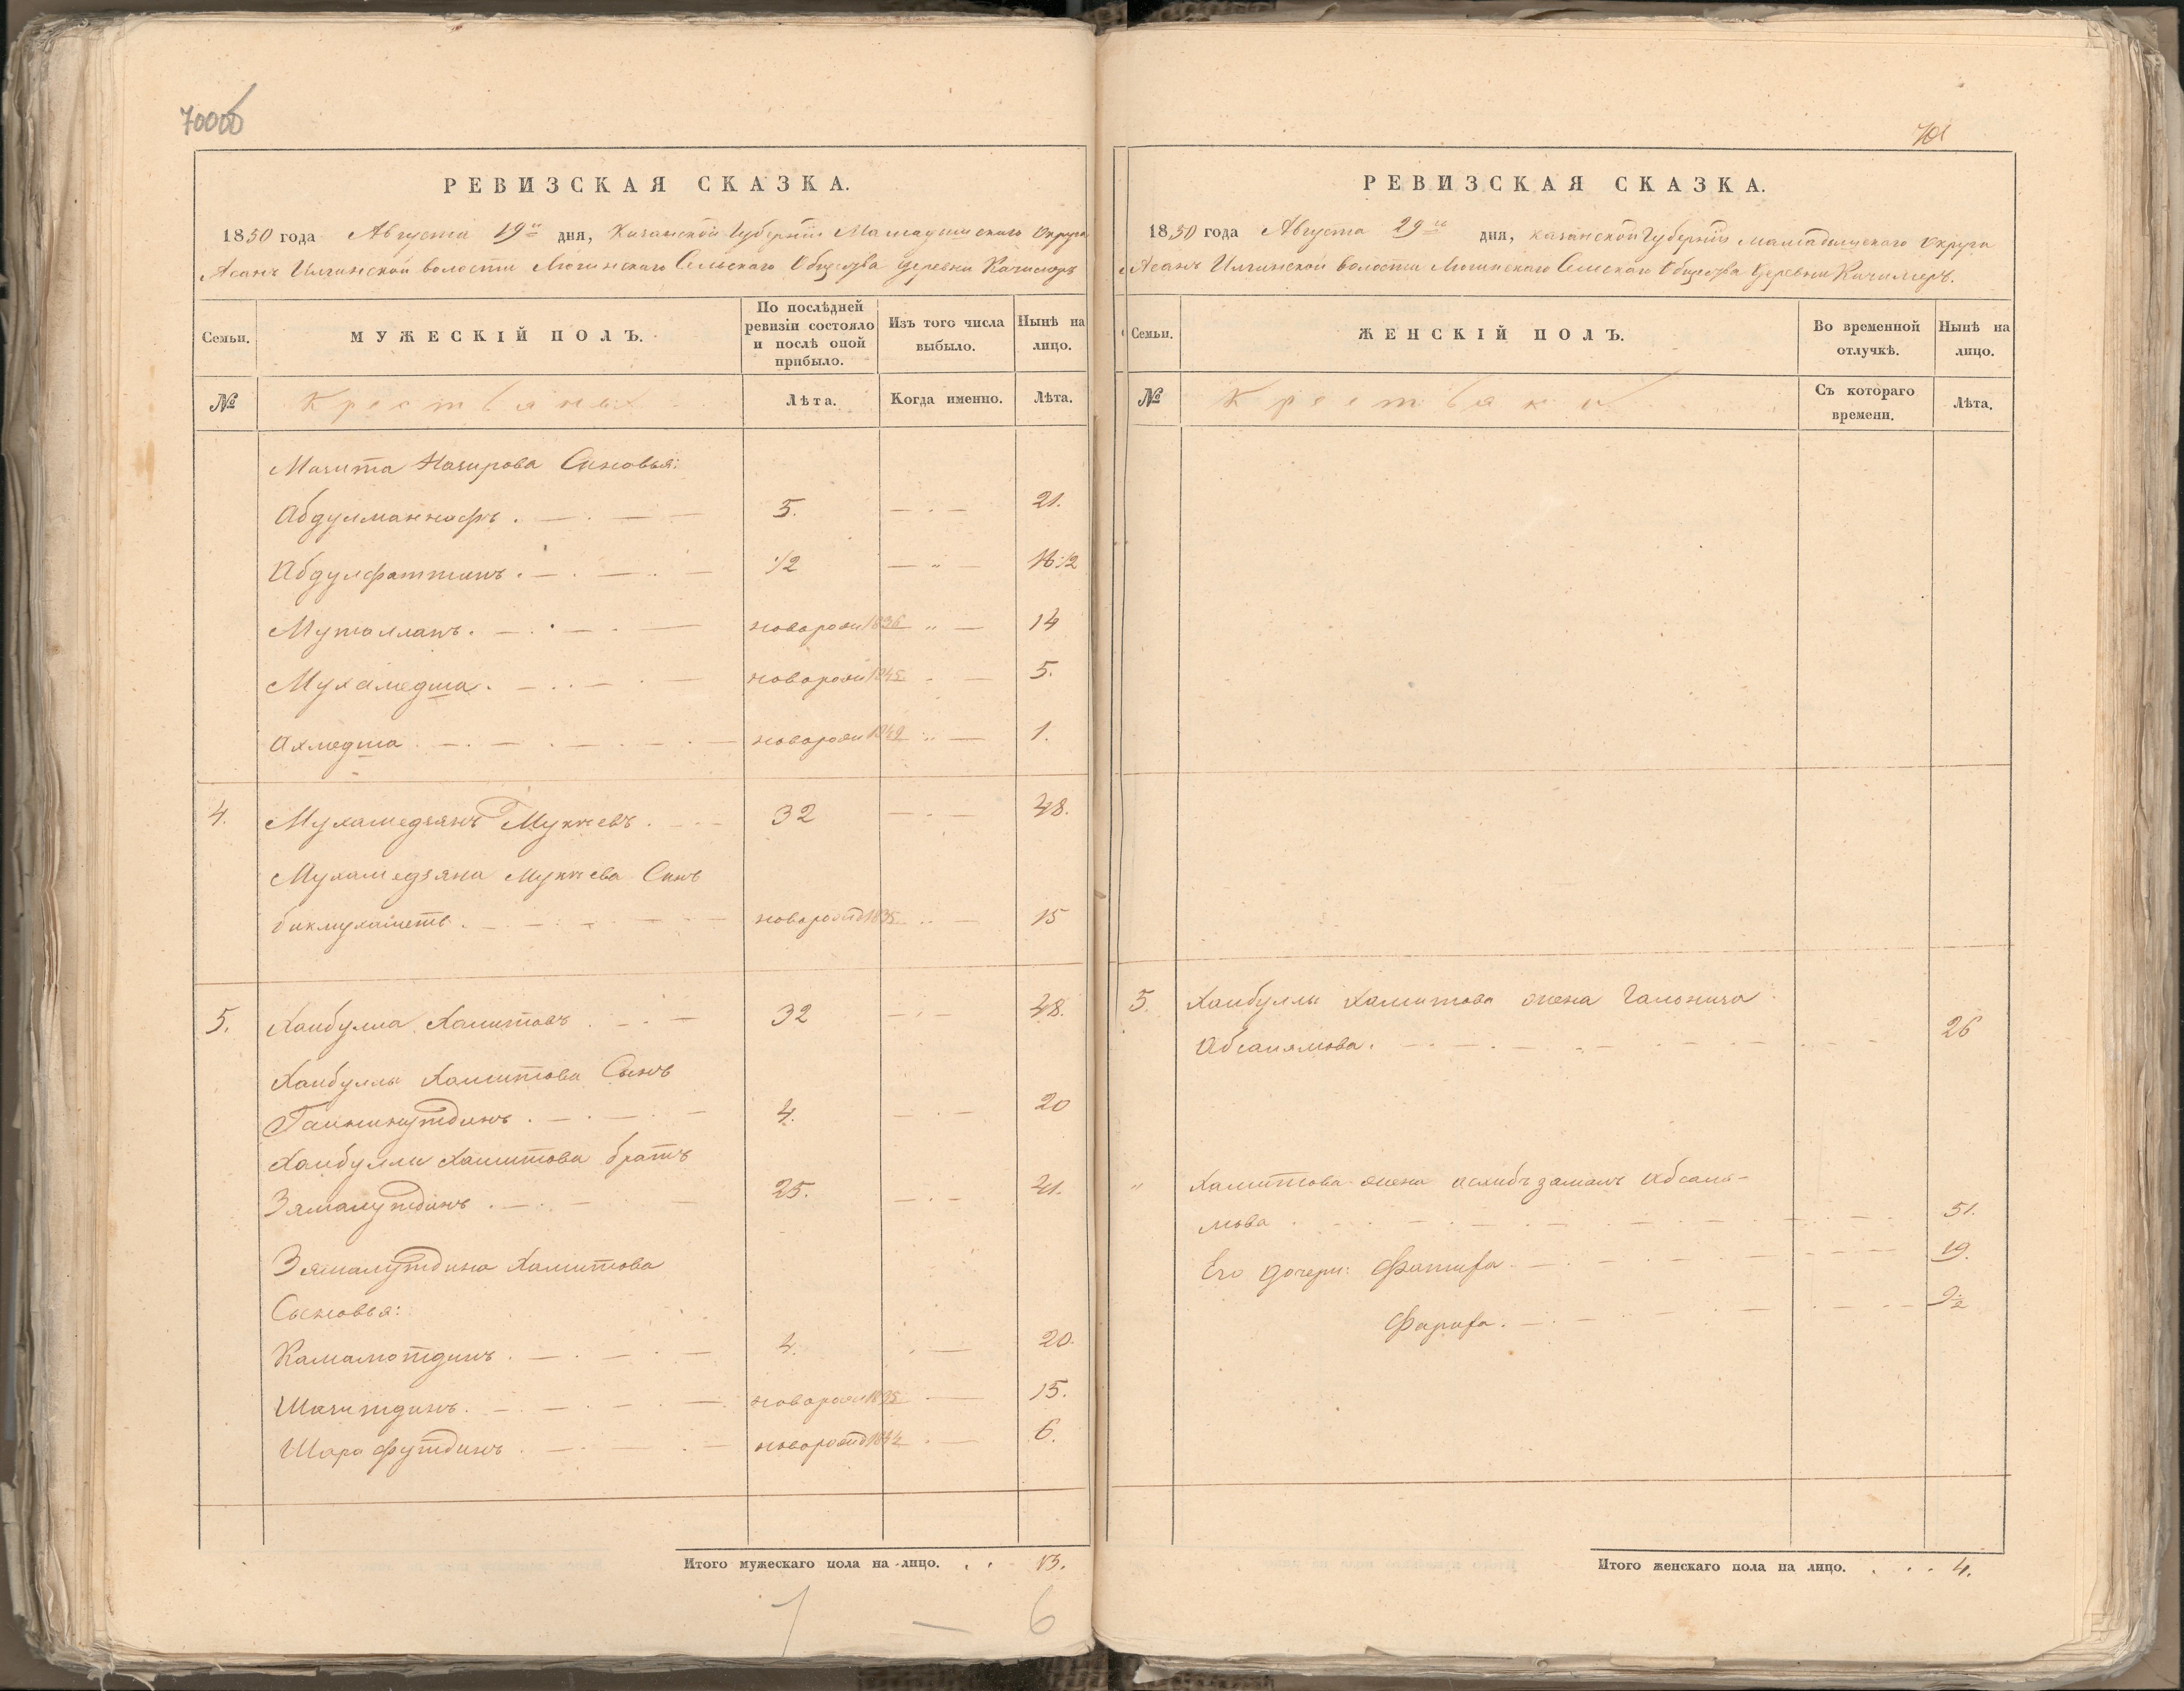 700об
РЕВИЗСКАЯ СКАЗКА.
1850 года Августа 19го дня, Казанской Губернiи Мамадышскаго Округа
Асанъ Илгинской волости Сельскаго Общества деревни Качимеръ
Семьи.
МУЖЕСКIЙ ПОЛЪ.
По послѣдней ревизiи состояло и послѣ оной прибыло.
Изъ того числа выбыло.
Нынѣ на лицо.
№
Крестьянъ
Лѣта.
Когда именно.
Лѣта.
Мазита Назирова Сыновья:
Абдулманнафъ . 5. 21.
Абдулфаттихъ . 1/2 16 1/2
Муталлапъ . новорожд 1836 14
Мухамедша . новорожд 1845 5.
Ахмедша . новорожд 1849 1.
4. Мухамедзянъ Мукаевъ . 32 48.
Мухамедзяна Мукаева Сынъ
бикмухаметъ . новорожд 1835 15
5. Хаибулла Хамитовъ . 32 48.
Хаибуллы Хамитова Сынъ
Гайнинутдинъ . 4. 20
Хаибуллы Хамитова братъ
Зямалутдинъ . 25. 41.
Зямалутдина Хамитова
Сыновья:
Камалютдинъ . 4. 20.
Шагитдинъ . новорожд 1835 15.
Шарафутдинъ . новорожд 1844 6.
Итого мужескаго пола на-лицо. . . 13.
1 — 6
701
РЕВИЗСКАЯ СКАЗКА.
1850 года Августа 29го дня, Казанской Губернiи Мамадышскаго Округа
Асанъ Илгинской волости Сельскаго Общества деревни Качимеръ.
Семьи.
ЖЕНСКIЙ ПОЛЪ.
Во временной отлучкѣ.
Нынѣ на лицо.
№
Крестьянки
Съ котораго времени.
Лѣта.
5. Хаибуллы Хамитова жена
Абсалямова . 26
" Хамитова жена Абсаля-
мова . 51.
Его дочери: Фатифа . 19.
Фарифа . 9 1/2
Итого женскаго пола на лицо. . . . 4.